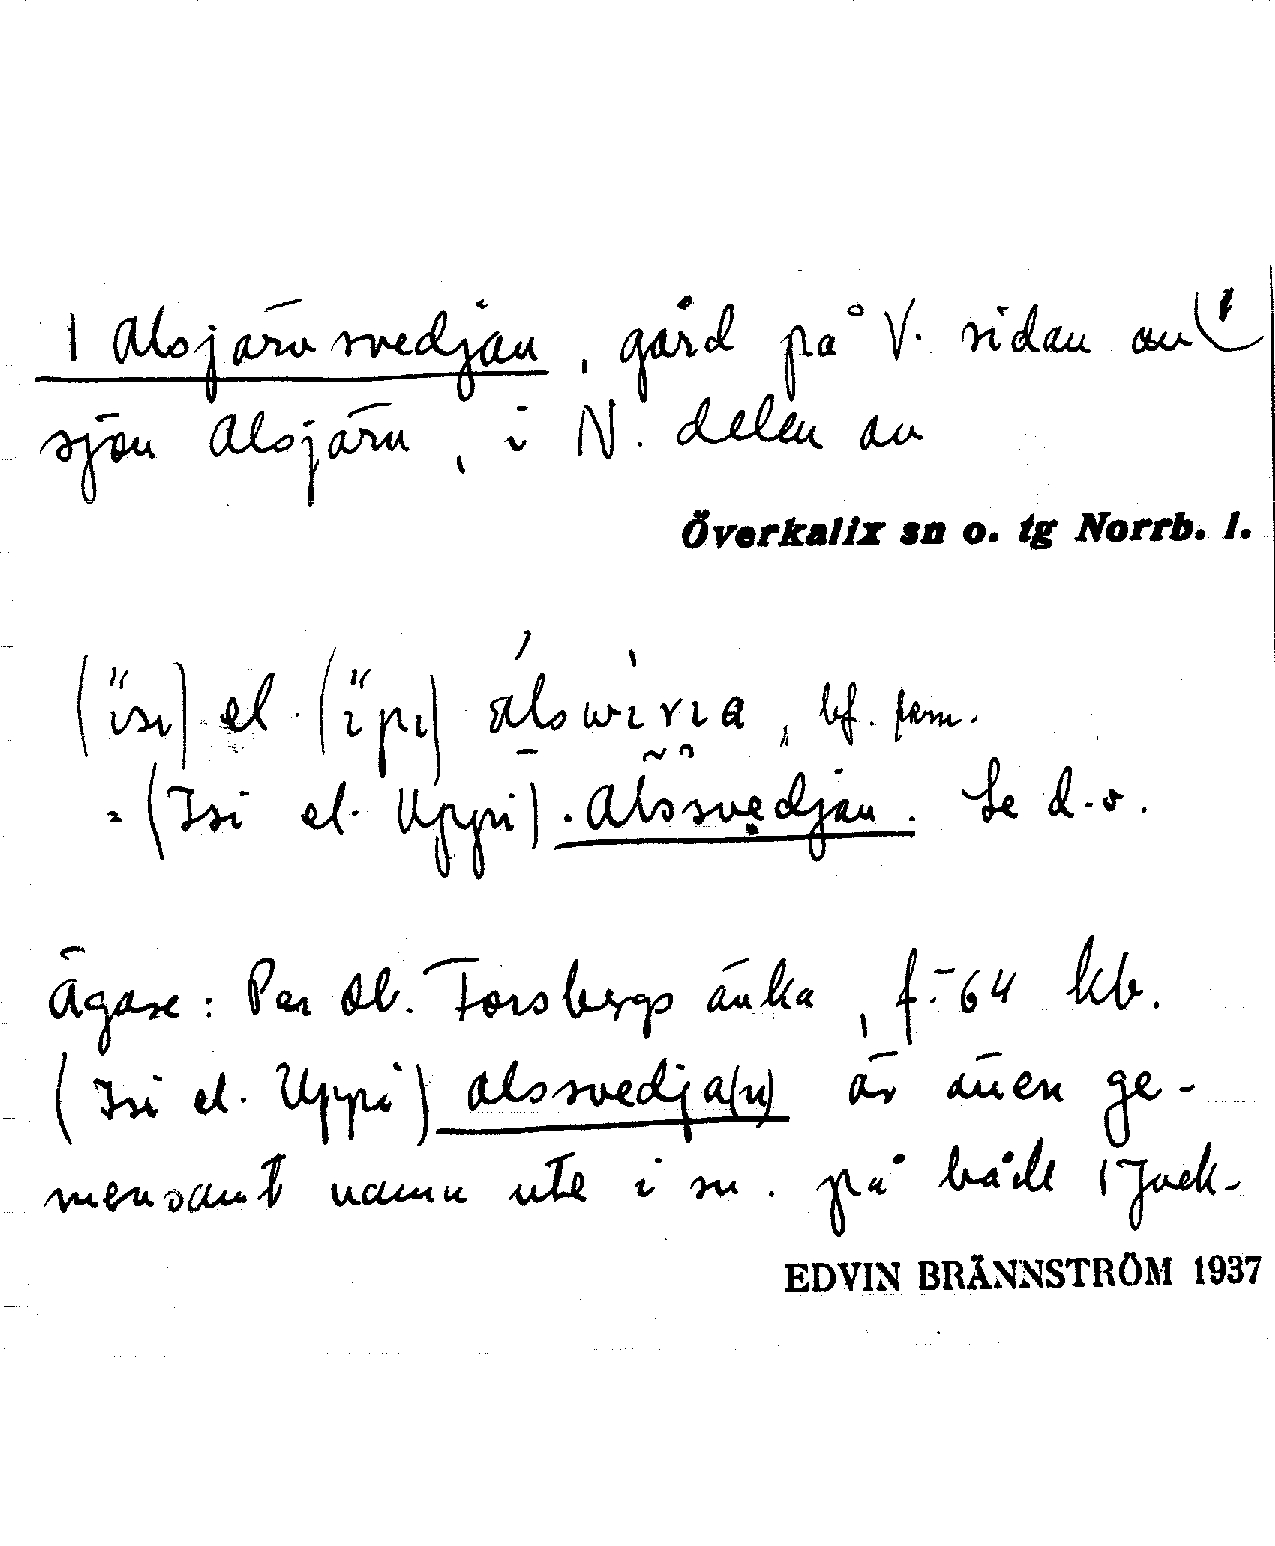 1 Alsjärvsvedjan, gård på V. sidan av 1
sjön Alsjärv, i N. delen av
Överkalix sn o. tg Norrb. l.
(isi) el. (ipi) álswìria, bf. fem.
= (Isi el. Uppi). Alssvedjan. Se d.o.
Ägare: Per Ol. Forsbergs änka, f. -64 kb.
(Isi el. Uppi) alssvedja(n) är även ge-
mensamt namn ute i sn. på både 1 Jock-
EDVIN BRÄNNSTRÖM 1937